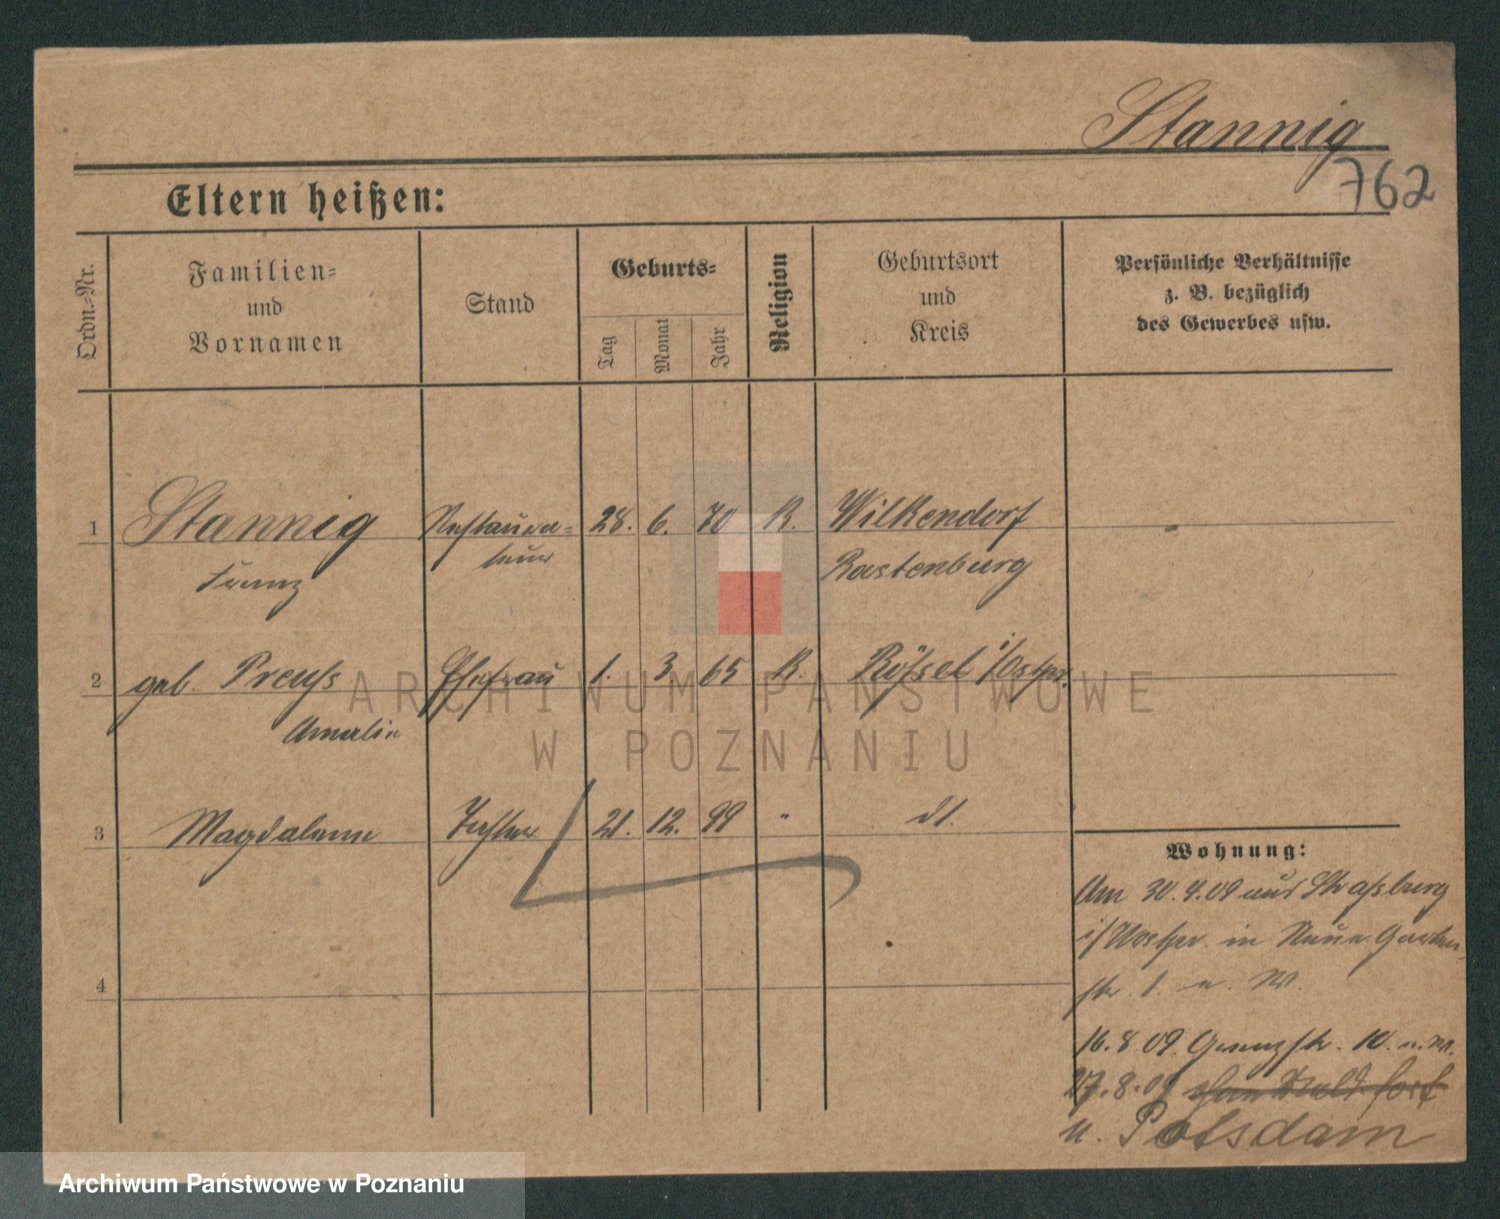 Stannig
762
Eltern heißen:
Ordn.-Nr.
Familien-
und
Vornamen
Stand
Geburts-
Tag
Monat
Jahr
Religion
Geburtsort
und
Kreis
Persönliche Verhältnisse
z. B. bezüglich
des Gewerbes usw.
1 Stannig Restaura- 28. 6. 70 K. Wilkendorf
Franz teur Rastenburg
2 geb. Preuſs Ehefrau 1. 3 65 K. Röſsel i/Ostpr.
Amalie
3 Magdalene Tochter 21. 12. 99 " dt.
4
Wohnung:
Am 30.4.09 aus Straſsburg
i/Westpr. in Neue Garten
str. 1. u. W.
16.8 09. Grenzstr. 10. u. W.
27.8.09
n. Potsdam
ARCHIWUM PAŃSTWOWE
W POZNANIU
Archiwum Państwowe w Poznaniu